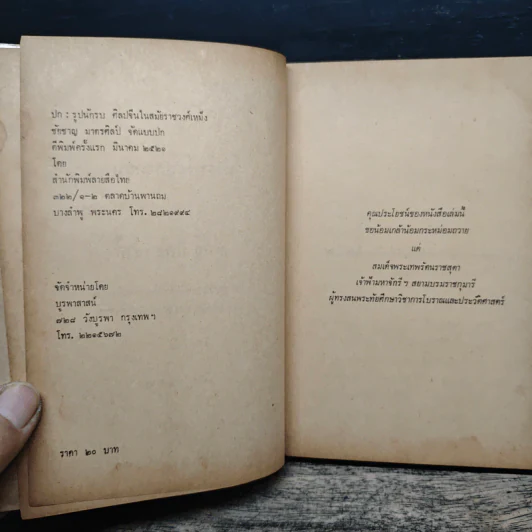 ปก : รูปนักรบ ศิลปจีนในสมัยราชวงศ์เหม็ง
ชัยชาญ มาตรศิลป์ จัดแบบปก
ตีพิมพ์ครั้งแรก มีนาคม ๒๕๒๑
โดย
สำนักพิมพ์ลายสือไทย
๓๒๒/๑-๒ ตลาดบ้านพานถม
บางลำพู พระนคร โทร. ๒๘๒๑๙๙๔
จัดจำหน่ายโดย
บูรพาสาสน์
๗๒๘ วังบูรพา กรุงเทพฯ
โทร. ๒๒๑๕๖๗๒
ราคา ๒๐ บาท
คุณประโยชน์ของหนังสือเล่มนี้
ขอน้อมเกล้าน้อมกระหม่อมถวาย
แด่
สมเด็จพระเทพรัตนราชสุดา
เจ้าฟ้ามหาจักรีฯ สยามบรมราชกุมารี
ผู้ทรงสนพระทัยศึกษาวิชาการโบราณและประวัติศาสตร์